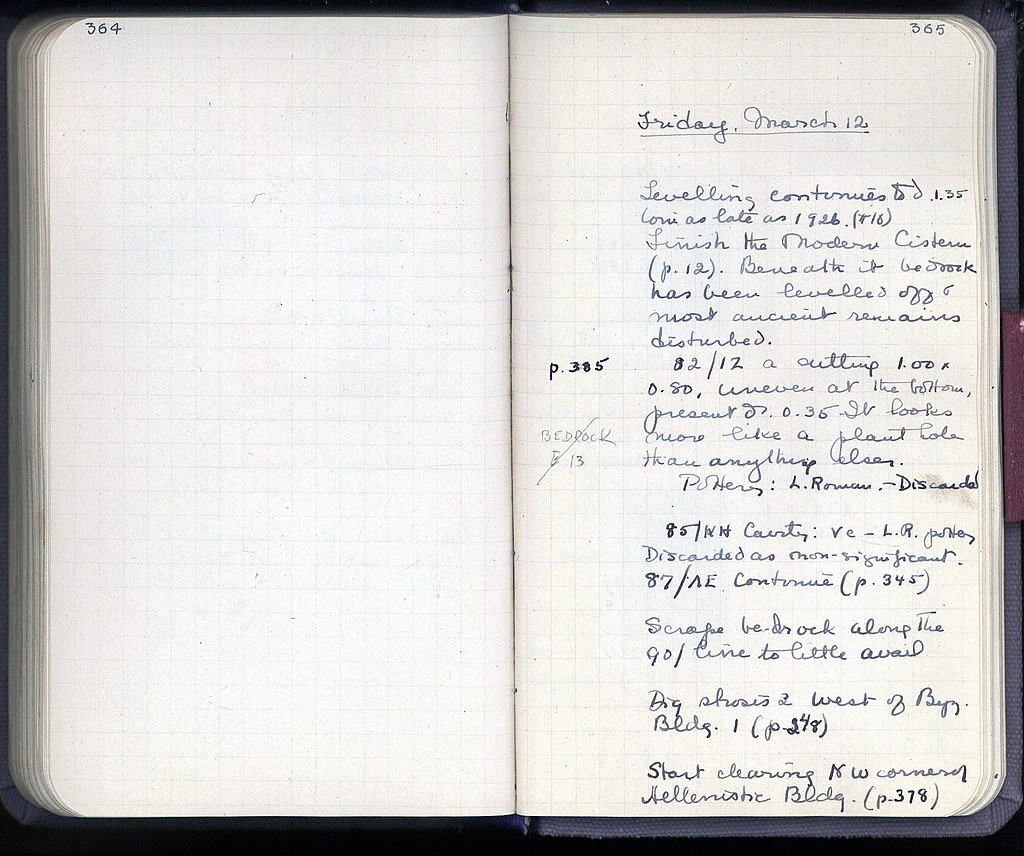 364
365
Friday, March 12
Levelling continues to d. 1.35
Coin as late as 1926.
Finish the Modern Cistern
(p. 12). Beneath it bedrock
has been levelled off &
most ancient remains
disturbed.
p. 385
82/IZ a cutting 1.00 x
0.80, uneven at the bottom,
present D. 0.35 It looks
BEDROCK
more like a plant hole
E 13
than anything else.
Pottery: L. Roman. - Discarded
85/ Cavity: ve - L.R. pottery
Discarded as non-significant.
87/ΛE Continue (p. 345)
Scrape bedrock along the
90/ line to little avail
Dig strosis 2 west of Byz.
Bldg. 1 (p. 248)
Start clearing NW corner of
Hellenistic Bldg. (p. 378)